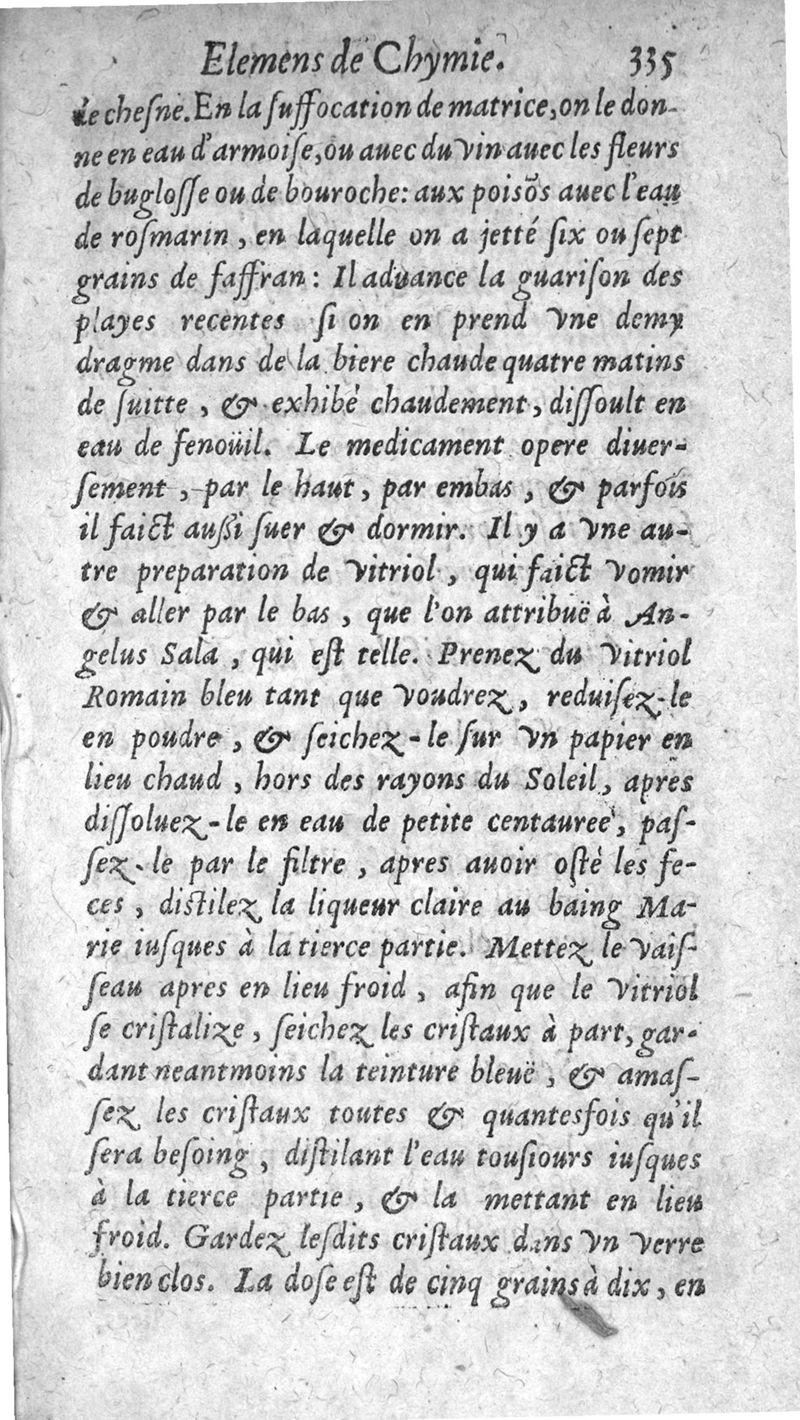 Elemens de Chymie. 335
de cheſne. En la ſuffocation de matrice, on le don-
ne en eau d'armoiſe, ou auec du vin auec les fleurs
de bugloſſe ou de bouroche: aux poisõs auec l'eau
de roſmarin, en laquelle on a jetté ſix ou ſept
grains de ſaffran: Il aduance la guariſon des
playes recentes ſi on en prend vne demy
dragme dans de la biere chaude quatre matins
de ſuitte, & exhibé chaudement, diſſoult en
eau de fenoüil. Le medicament opere diuer-
ſement, par le haut, par embas, & parfois
il faict außi ſuer & dormir. Il y a vne au-
tre preparation de vitriol, qui faict vomir
& aller par le bas, que l'on attribuë à An-
gelus Sala, qui eſt telle. Prenez du vitriol
Romain bleu tant que voudrez, reduiſez-le
en poudre, & ſeichez-le ſur vn papier en
lieu chaud, hors des rayons du Soleil, apres
diſſoluez-le en eau de petite centaureè, paſ-
ſez-le par le filtre, apres auoir oſtè les fe-
ces, diſtilez la liqueur claire au baing Ma-
rie iuſques à la tierce partie. Mettez le vaiſ-
ſeau apres en lieu froid, afin que le vitriol
ſe criſtalize, ſeichez les criſtaux à part, gar-
dant neantmoins la teinture bleuë, & amaſ-
ſez les criſtaux toutes & quantesfois qu'il
ſera beſoing, diſtilant l'eau touſiours iuſques
à la tierce partie, & la mettant en lieu
froid. Gardez leſdits criſtaux dans vn verre
bien clos. La doſe eſt de cinq grains à dix, en